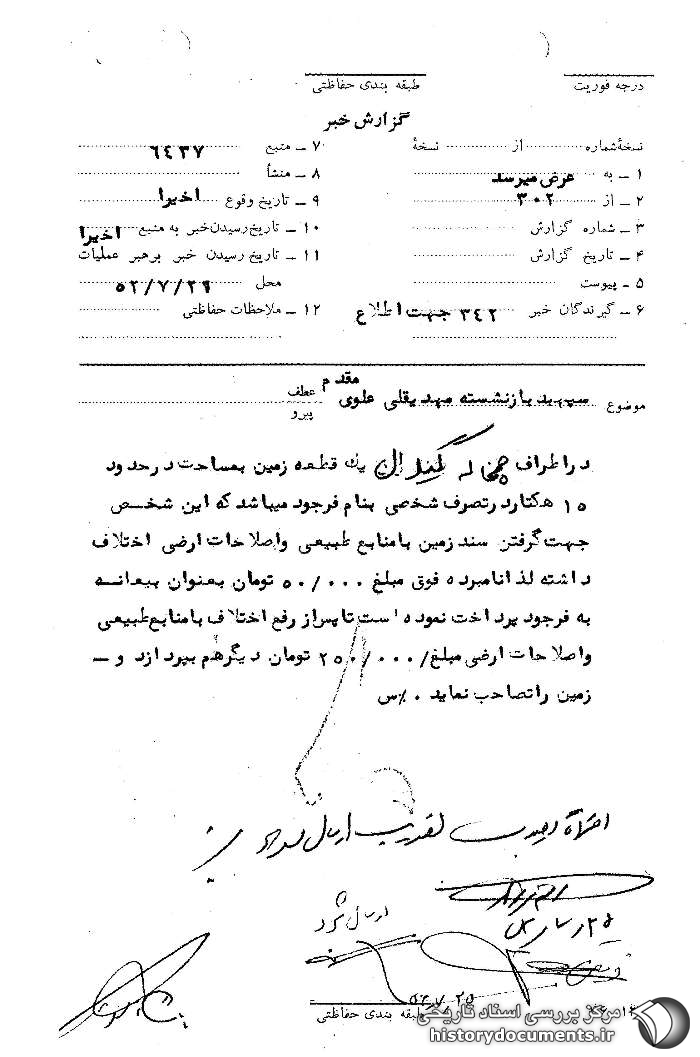 درجه فوریت
طبقه بندی حفاظتی
گزارش خبر
نسخهٔ شماره از نسخهٔ
۱ – به عرض میرسد
۲ – از ۳۰۲
۳ – شماره گزارش
۴ – تاریخ گزارش
۵ – پیوست
۶ – گیرندگان خبر ۳۴۲ جهت اطلاع
۷ – منبع ۶۴۳۷
۸ – منشأ
۹ – تاریخ وقوع اخیرا
۱۰ – تاریخ رسیدن خبر به منبع اخیرا
۱۱ – تاریخ رسیدن خبر برهبر عملیات
محل
۱۲ – ملاحظات حفاظتی
موضوع سپهبد بازنشسته مهدیقلی علوی مقدم
عطف
پیرو
در اطراف یک قطعه زمین بمساحت در حدود
۱۵ هکتار در تصرف شخصی بنام فرجود میباشد که این شخص
جهت گرفتن سند زمین با منابع طبیعی و اصلاحات ارضی اختلاف
داشته لذا نامبرده فوق مبلغ ۵۰/۰۰۰ تومان بعنوان بیعانه
به فرجود پرداخت نموده است تا پس از رفع اختلاف با منابع طبیعی
و اصلاحات ارضی مبلغ/۲۵۰/۰۰۰ تومان دیگر هم بپردازد و –
زمین را تصاحب نماید . %س
ارسال شد
طبقه بندی حفاظتی
مرکز بررسی اسناد تاریخی
historydocuments.ir